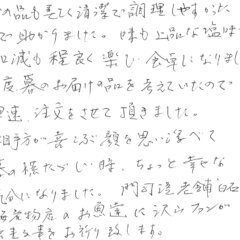 の品も美しく清潔で調理しやすかった
で助かりました。味も上品な塩味
加減も程良く楽しい食卓になりまし
度暮のお届け品を考えていたので
速、注文をさせて頂きました。
相手方が喜こぶ顔を思い浮べて
の慌たゞしい時、ちょっと幸せな
気分になりました。門司港老舗
のお魚達に沢山ファンが
をお祈り致します。